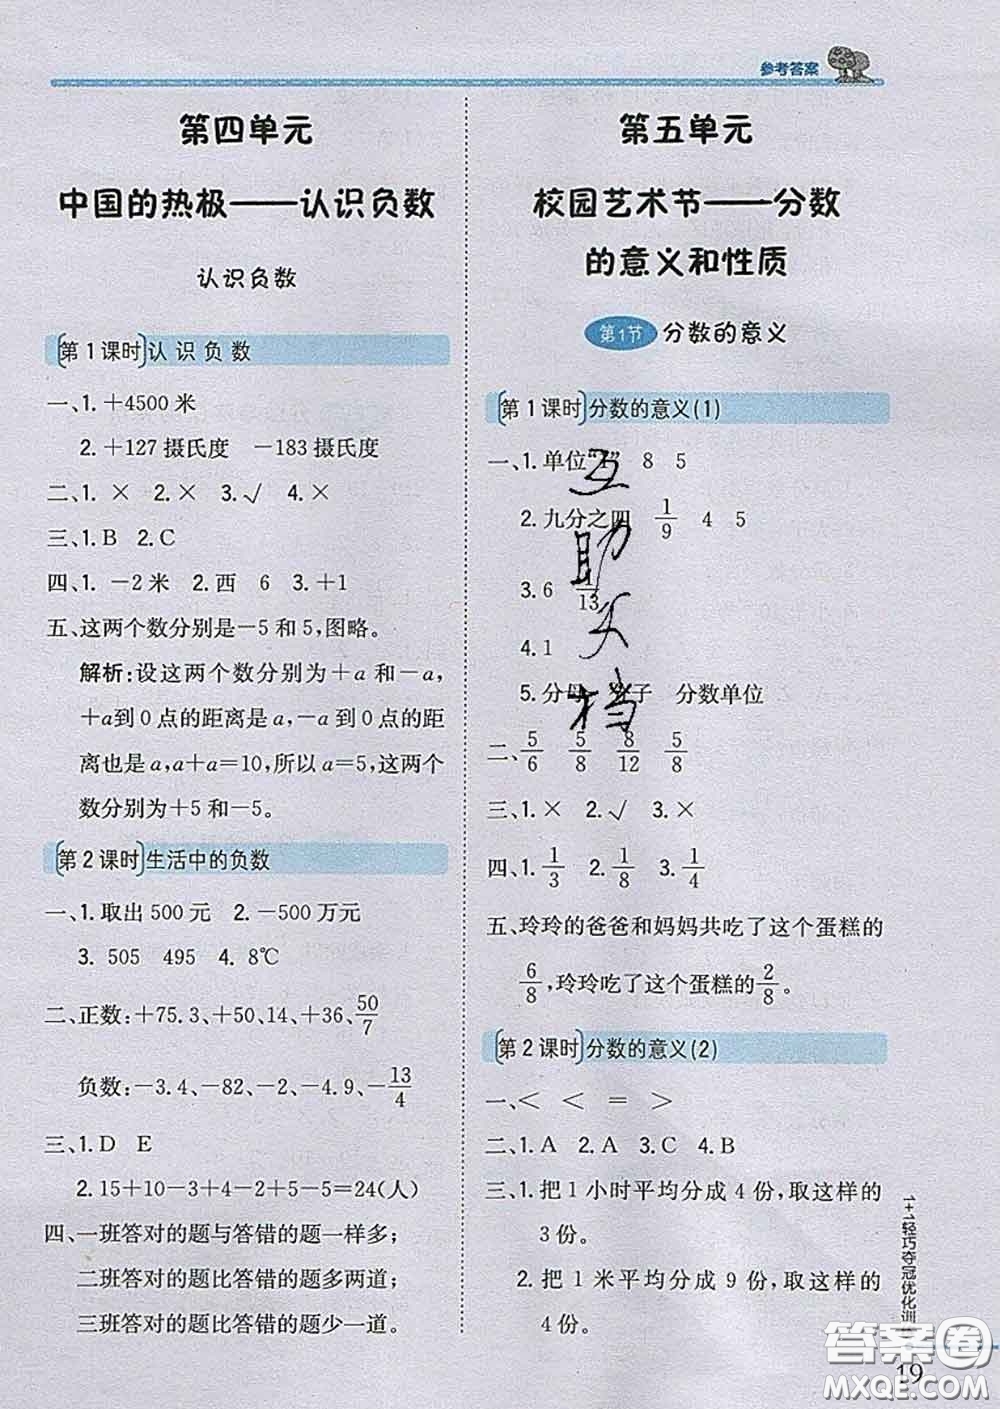 参考答案
第四单元
中国的热极——认识负数
认识负数
第1课时 认识负数
一、1. +4500 米
2. +127 摄氏度 -183 摄氏度
二、1. × 2. × 3. √ 4. ×
三、1. B 2. C
四、1. -2 米 2. 西 6 3. +1
五、这两个数分别是-5 和 5,图略。
解析:设这两个数分别为+a 和-a,
+a到 0 点的距离是 a,-a 到 0 点的距
离也是 a,a+a=10,所以 a=5,这两个
数分别为+5 和-5。
第2课时 生活中的负数
一、1. 取出 500 元 2. -500 万元
3. 505 495 4. 8℃
二、正数:+75.3、+50、+10、+36、50/7
负数:-3.4、-82、-2、-4.9、-13/4
三、1. D E
2. 15+10-3+4-2+5-5=24(人)
四、一班答对的题与答错的题一样多;
二班答对的题比答错的题多两道;
三班答对的题比答错的题少一道。
第五单元
校园艺术节——分数
的意义和性质
第1节 分数的意义
第1课时 分数的意义(1)
一、1. 单位“1” 8 5
2. 九分之四 1/9 4 5
3. 6 1/13
4. 1
5. 分母 分子 分数单位
二、5/6 5/8 8/12 5/8
三、1. × 2. √ 3. ×
四、1. 1/3 2. 1/8 3. 1/4
五、玲玲的爸爸和妈妈共吃了这个蛋糕的
6/8,玲玲吃了这个蛋糕的2/8。
第2课时 分数的意义(2)
一、< < = >
二、1. A 2. A 3. C 4. B
三、1. 把 1 小时平均分成 4 份,取这样的
3 份。
2. 把 1 米平均分成 9 份,取这样的
4 份。
互助文档
1+1轻巧夺冠优化训
19
答案圈
MXQE.COM